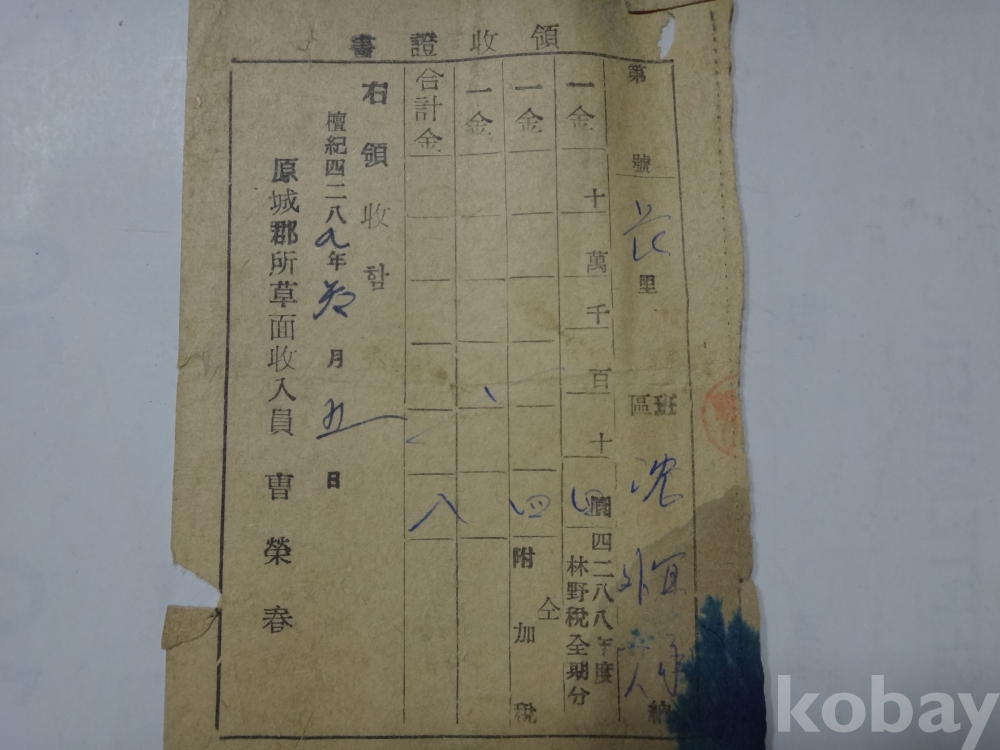 領收證書
第 號
里
區 班
沈
納
一金 十萬千百十圜 四二八八年度
四 林野稅全期分
一金 四 仝
附加稅
一金
合計金 八
右領收함
檀紀四二八九年 月 五日
原城郡所草面收入員 曺榮春
kobay